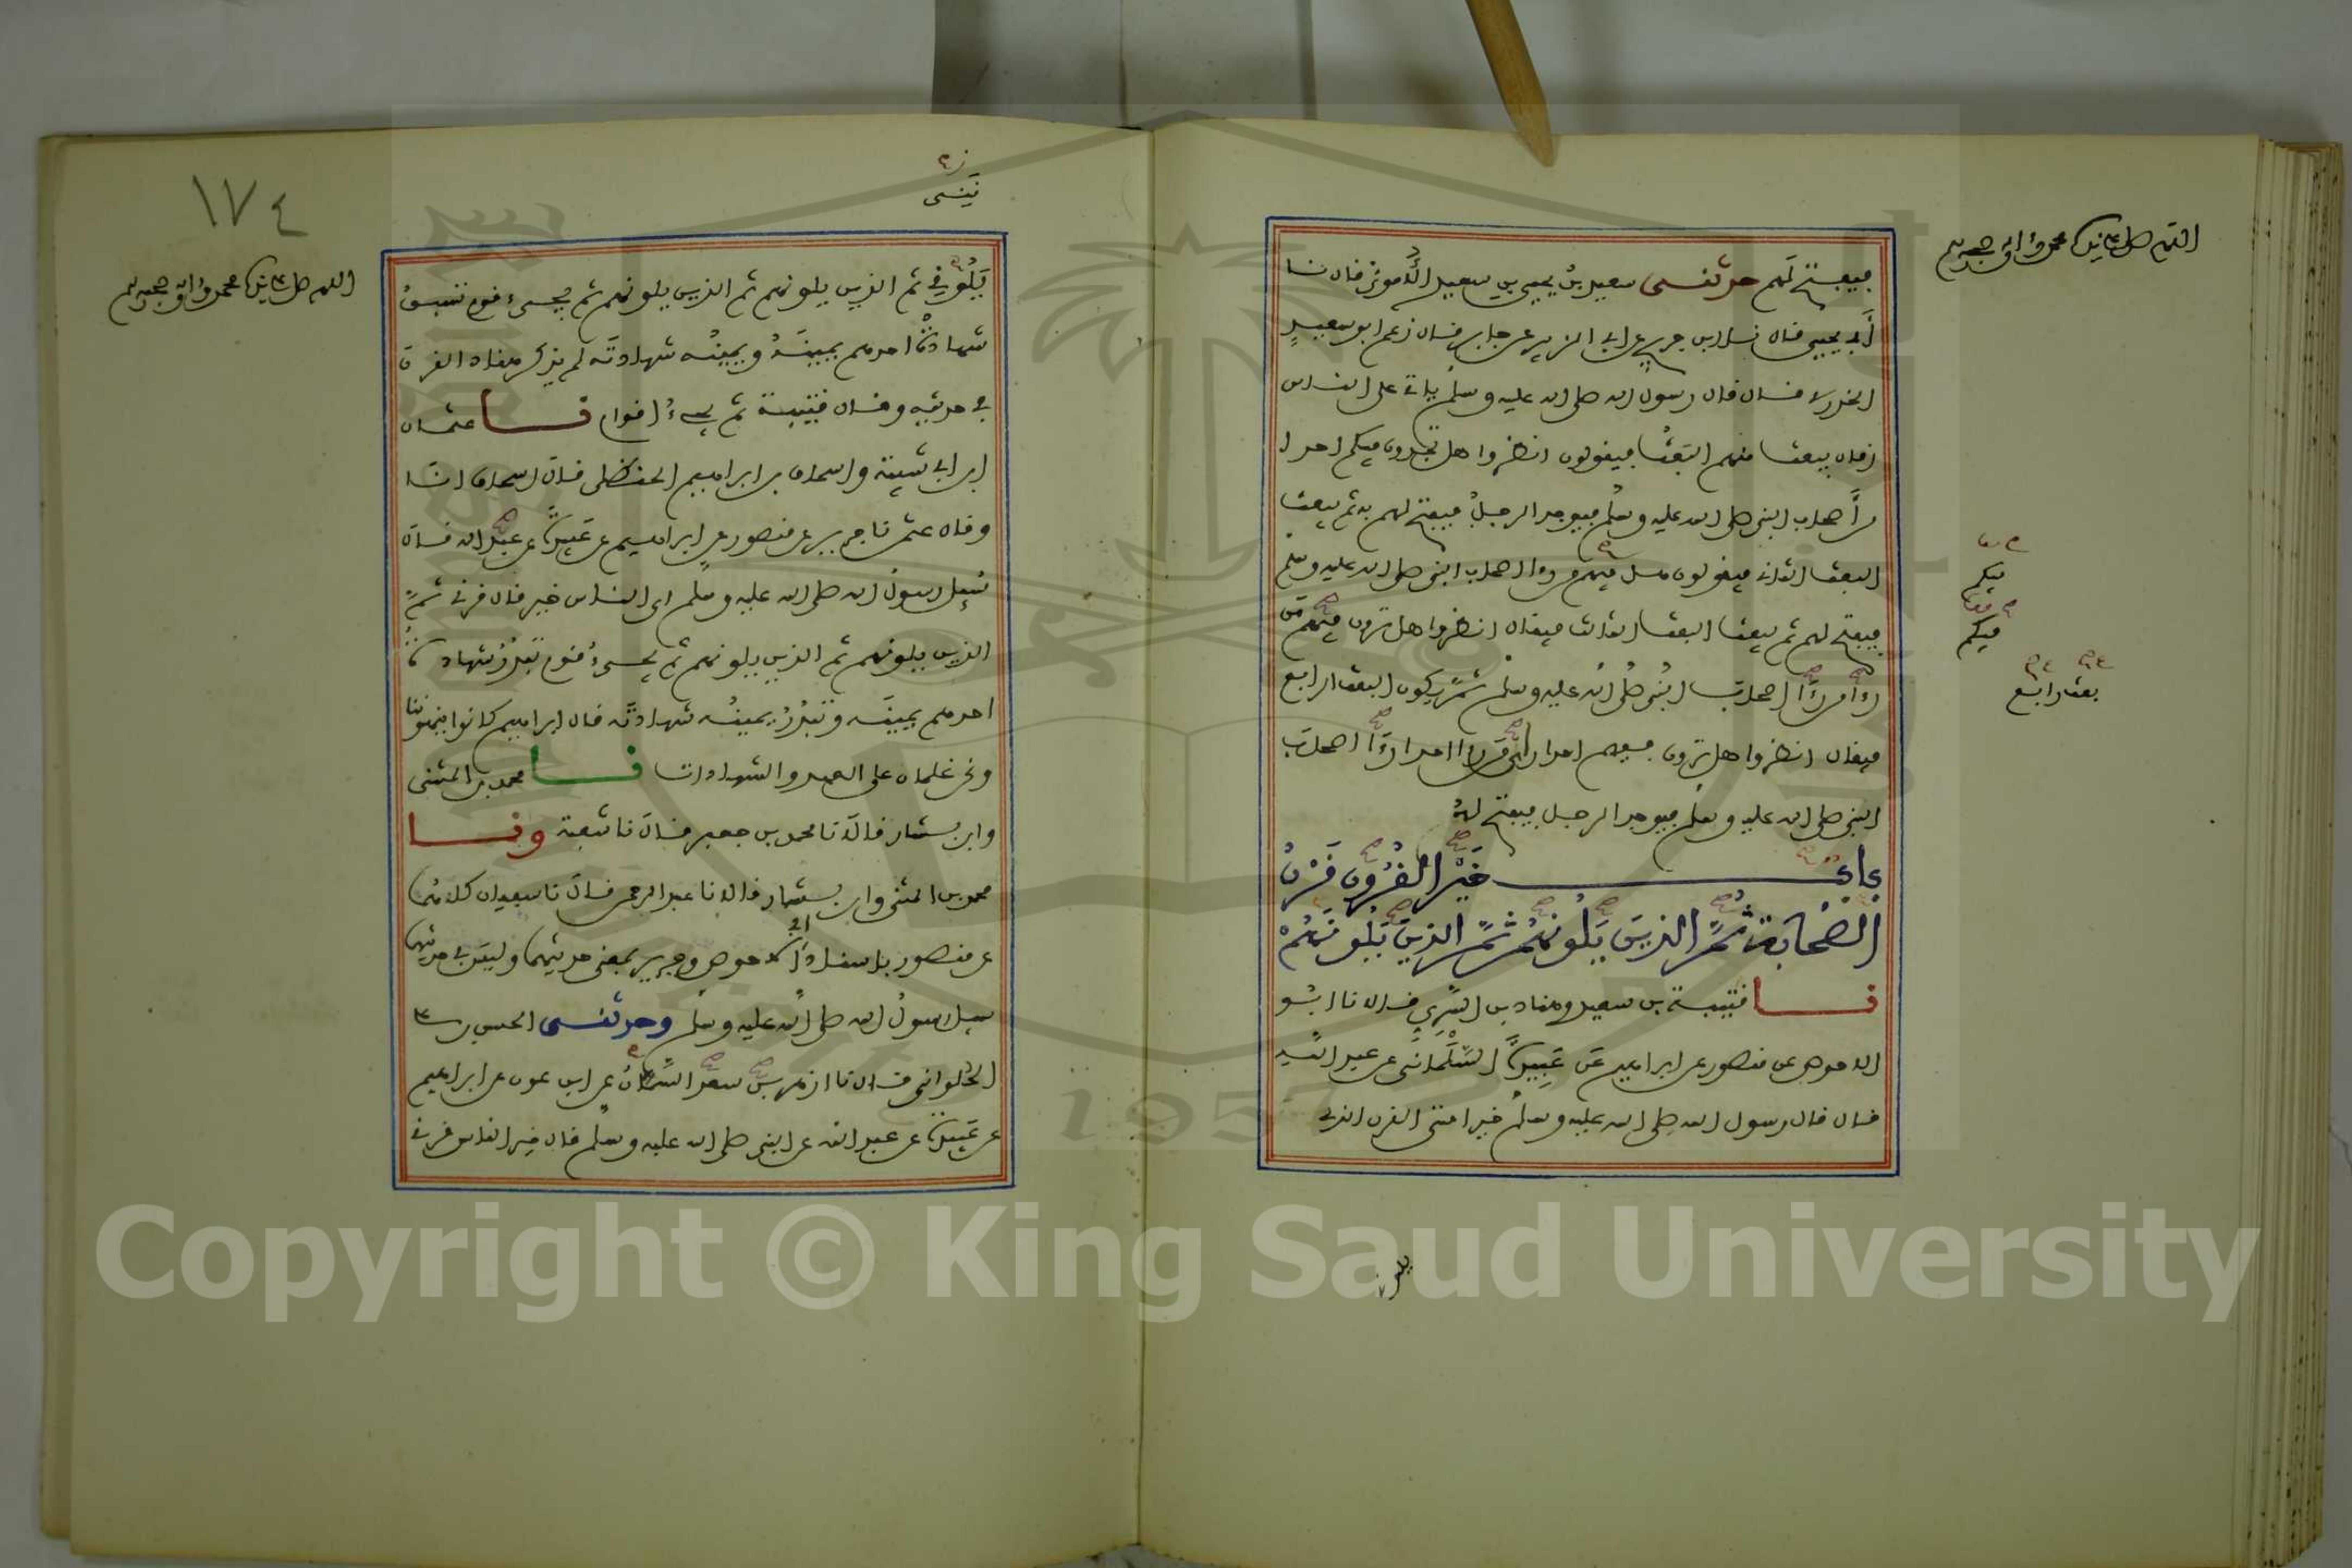 اللهم صل على سيدنا محمد وآله وصحبه وسلم
فيفتح لهم حدثنى سعيد بن يحيى بن سعيد الأموى قال نا
أبى يحيى قال نا ابن جريج عن ابى الزبير عن جابر قال زعم ابو سعيد
الخدرى قال قال رسول الله صلى الله عليه وسلم ياتى على الناس
زمان يبعث منهم البعث فيقولون انظروا هل تجدون فيكم احدا
من أصحاب النبى صلى الله عليه وسلم فيوجد الرجل فيفتح لهم به ثم يبعث
البعث الثانى فيقولون هل فيهم من رءا اصحاب النبى صلى الله عليه وسلم
فيفتح لهم ثم يبعث البعث الثالث فيقال انظروا هل ترون فيهم من
رءا من رءا اصحاب النبى صلى الله عليه وسلم ثم يكون البعث الرابع
فيقال انظروا هل ترون فيهم احدا رءا من رءا احدا رءا اصحاب
النبى صلى الله عليه وسلم فيوجد الرجل فيفتح له
فيكم
فيكم
بعث رابع
باب خير القرون قرن
الصحابة ثم الذين يلونهم ثم الذين يلونهم
نا قتيبة بن سعيد وهناد بن السرى قالا نا ابو
الاحوص عن منصور عن ابراهيم عن عبيدة السلمانى عن عبد الله
قال قال رسول الله صلى الله عليه وسلم خير امتى القرن الذى
اللهم صل على سيدنا محمد وآله وصحبه وسلم
١٧٤
يلونى ثم الذين يلونهم ثم الذين يلونهم ثم يجىء قوم تسبق
شهادة احدهم يمينه ويمينه شهادته لم يذكر هناد القرن
فى حديثه وقال قتيبة ثم يجىء اقوام نا عثمان
ابن ابى شيبة واسحاق بن ابراهيم الحنظلى قال اسحاق انا
وقال عثمن نا جرير عن منصور عن ابراهيم عن عبيدة عن عبد الله قال
سئل رسول الله صلى الله عليه وسلم اى الناس خير قال قرنى ثم
الذين يلونهم ثم الذين يلونهم ثم يجىء قوم تبدر شهادة
احدهم يمينه وتبدر يمينه شهادته قال ابراهيم كانوا ينهوننا
ونحن غلمان على العهد والشهادات نا محمد بن المثنى
وابن بشار قالا نا محمد بن جعفر قال نا شعبة ونا
محمد بن المثنى وابن بشار قالا نا عبد الرحمن قال نا سفيان كلاهما
عن منصور باسناد أبى الاحوص وجرير بمعنى حديثهما وليس فى حديثهما
سيل رسول الله صلى الله عليه وسلم وحدثنى الحسن بن على
الحلوانى قال نا ازهر بن سعد السمان عن ابن عون عن ابراهيم
عن عبيدة عن عبد الله عن النبى صلى الله عليه وسلم قال خير الناس قرنى
Copyright © King Saud University
1957